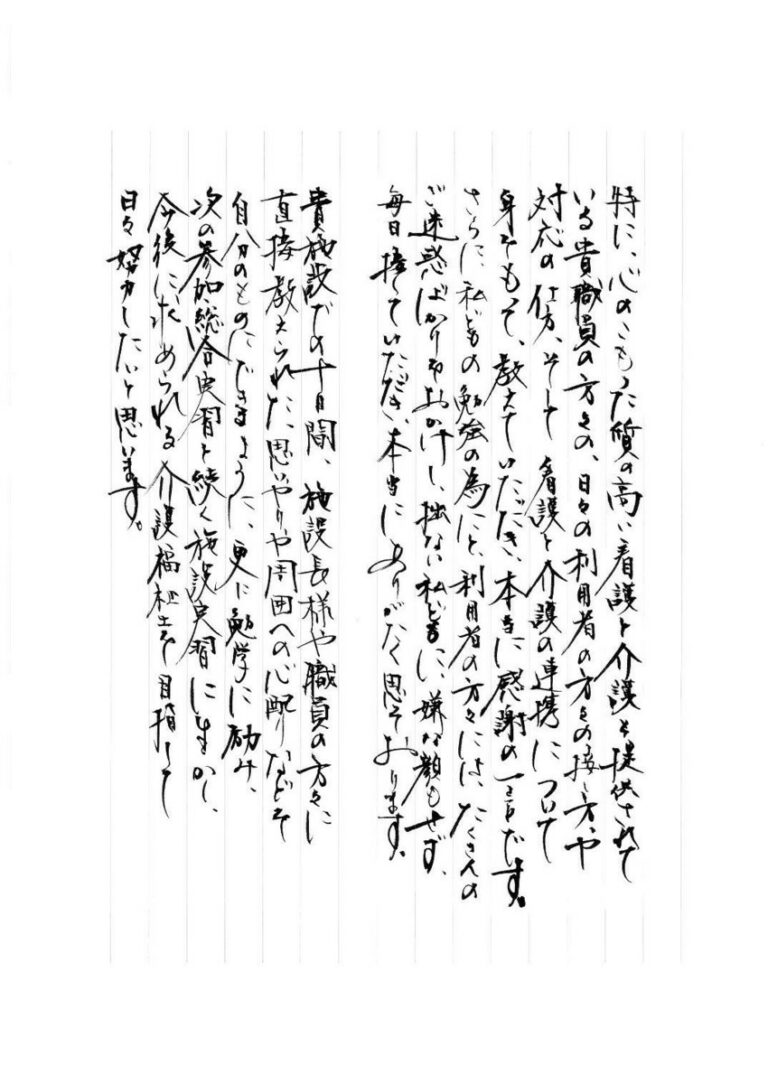 特に、心のこもった質の高い看護と介護を提供されて
いる貴職員の方々の、日々の利用者の方々の接し方、や
対応の仕方、そして看護と介護の連携について
身をもって、教えていただき、本当に感謝の一言です。
さらに、私どもの勉強の為にと、利用者の方々には、たくさんの
ご迷惑ばかりをおかけし、拙ない私どもに、嫌な顔もせず、
毎日接していただき、本当にありがたく思っております。
貴施設での十日間、施設長様や職員の方々に
直接教えられた、思いやりや周囲への心配りなどを
自分のものにできますように、更に勉学に励み、
次の参加総合実習と続く施設実習に生かし、
今後に求められる介護福祉士を目指して
日々努力したいと思います。